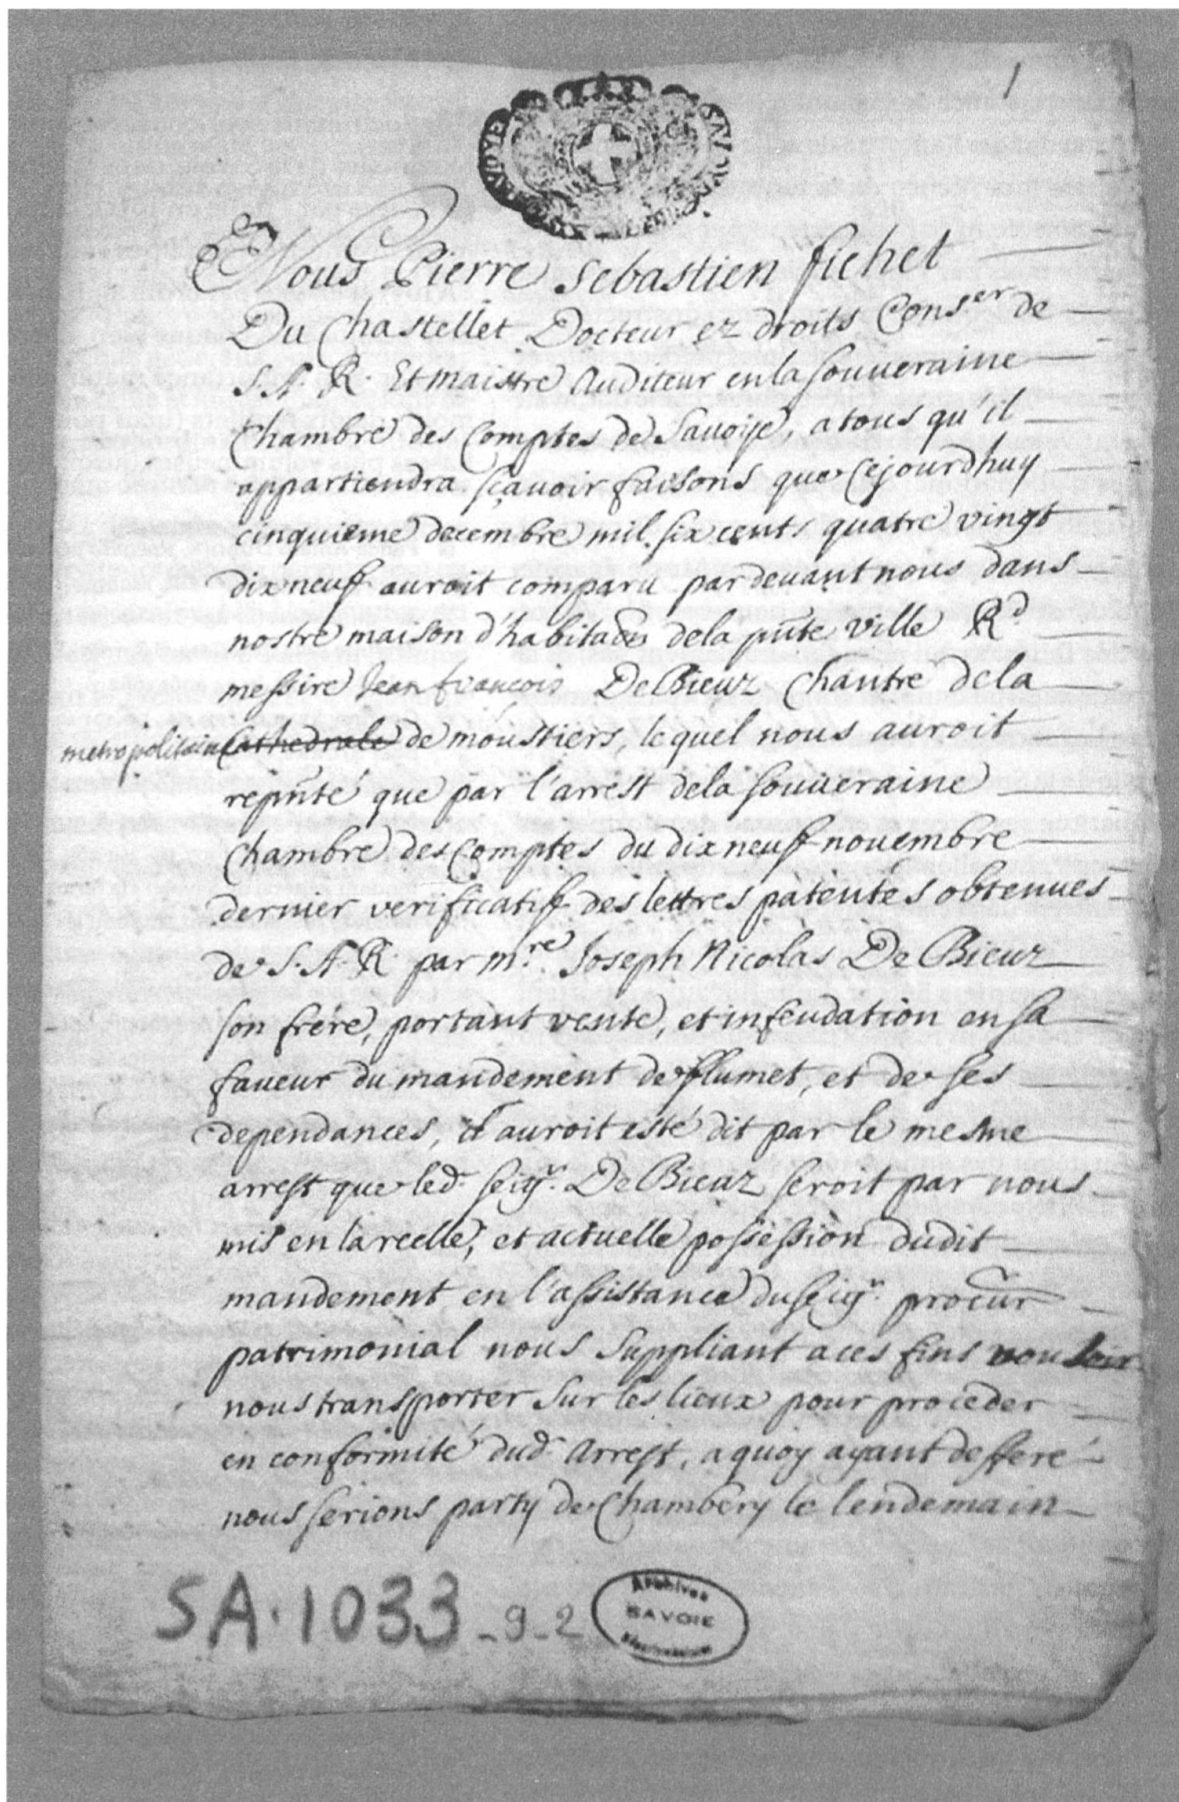 1
Nous Pierre Sebastien fichet
Du Chastellet Docteur ez droits Cons.er de
S. A. R. Et maistre Auditeur en la Souveraine
Chambre des Comptes de Savoye, a tous qu'il
appartiendra sçavoir faisons que Cejourdhuy
cinquieme decembre mil six cents quatre vingt
dixneuf auroit comparu par devant nous dans
nostre maison d'habitaõn de la pñte ville R.d
messire Jean françois De Bieux Chantre de la
metropolitaine Cathedrale de moustiers, lequel nous auroit
repñté que par l'arrest de la souveraine
Chambre des Comptes du dixneuf novembre
dernier verificatif des lettres patentes obtenues
de S. A. R. par m.re Joseph Nicolas De Bieux
son frere, portant vente, et infeudation en sa
faveur du mandement de flumet, et de ses
dependances, il auroit esté dit par le mesme
arrest que led. seigr. De Bieux seroit par nous
mis en la reelle, et actuelle possession dudit
mandement en l'assistance du seigr. procur
patrimonial nous suppliant a ces fins vouloir
nous transporter sur les lieux pour proceder
en conformité dud. Arrest, a quoy ayant defferé
nous serions party de Chambery le lendemain
SA.1033 -9-2
Archives
SAVOIE